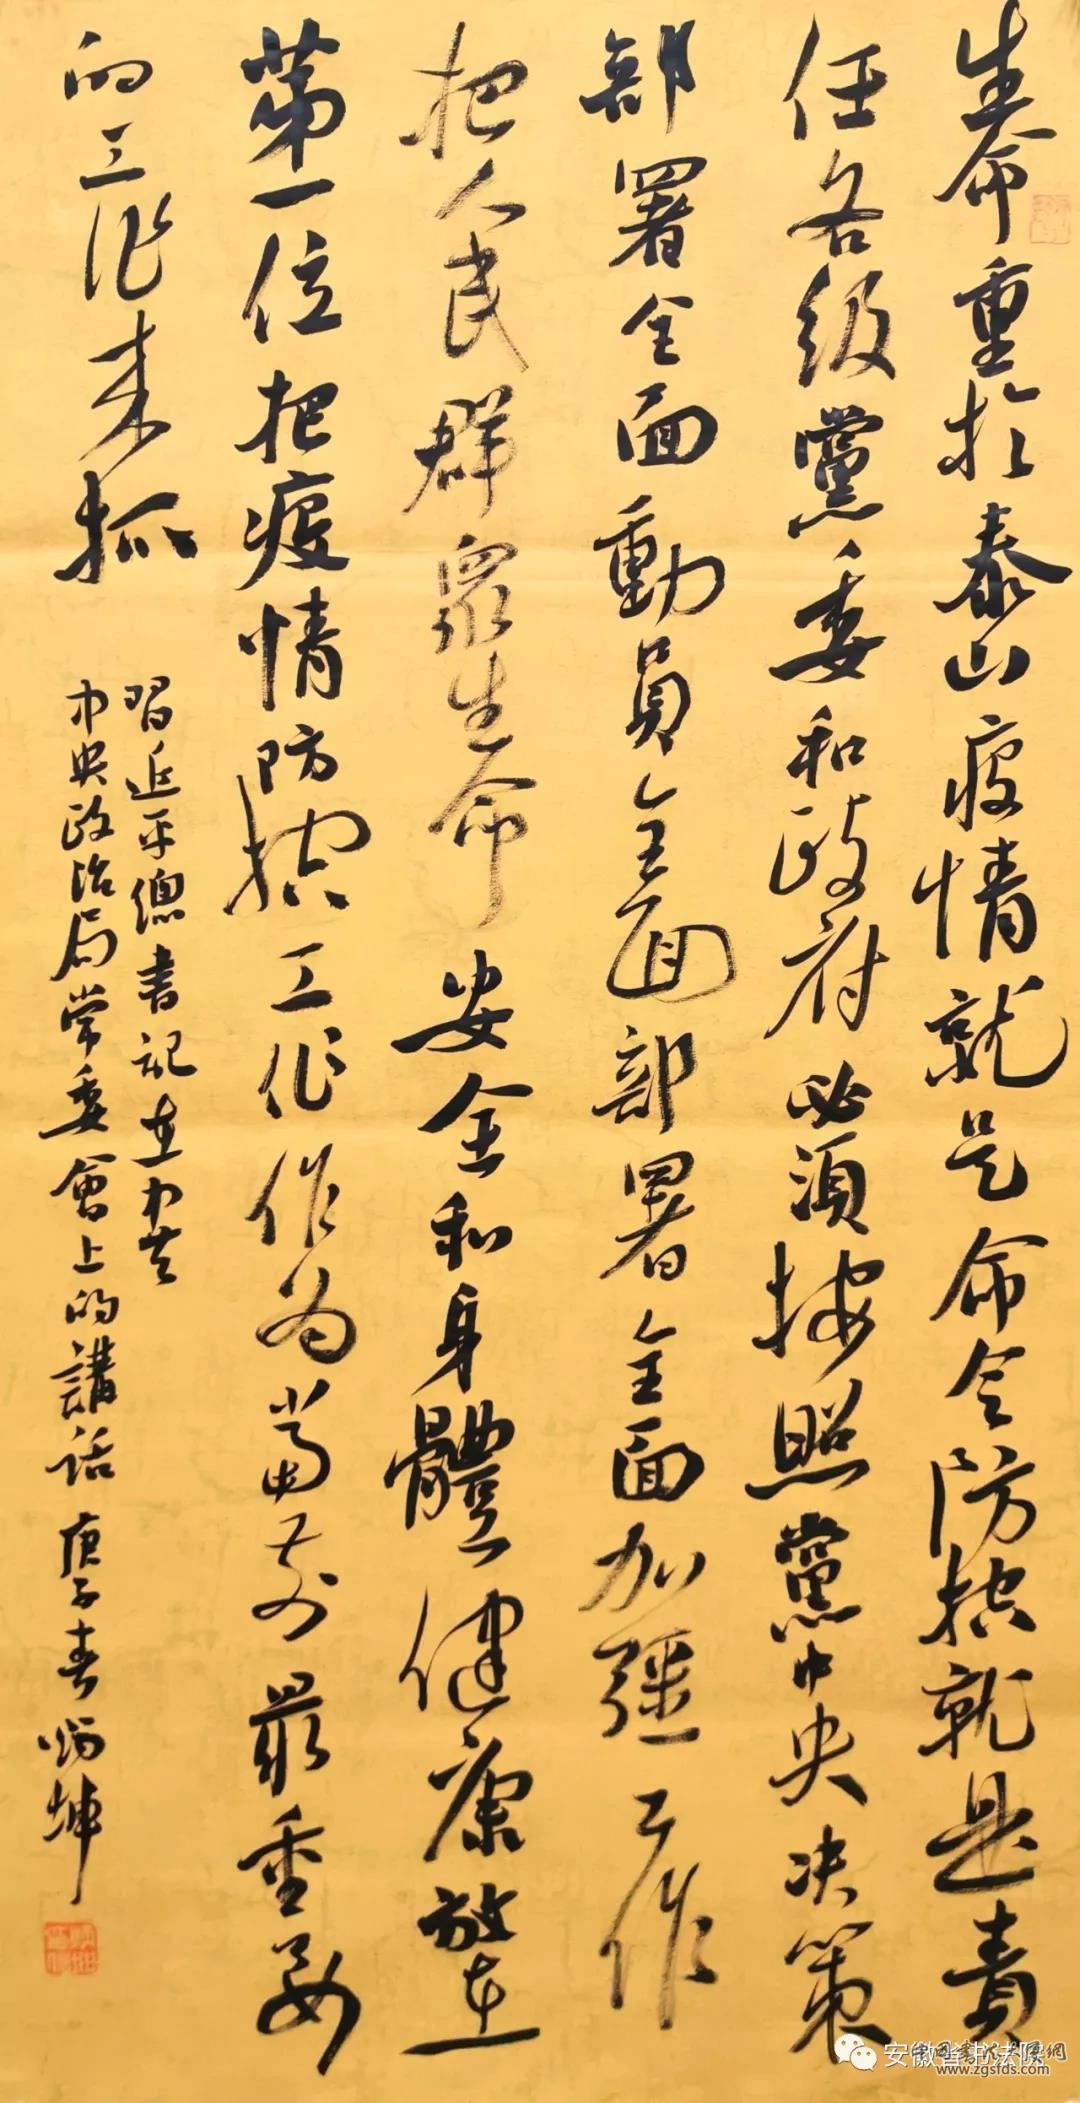 生命重扵泰山疫情就是命令防控就是责
任各级黨委和政府必须按照黨中央决策
部署全面動員全面部署全面加强工作
把人民群眾生命安全和身體健康放在
第一位把疫情防控工作作为当前最重要
的工作来抓
習近平總書记在中央
中央政治局常委會上的講话 庚子春 炳坤
安徽省书法院
www.zgsfds.com